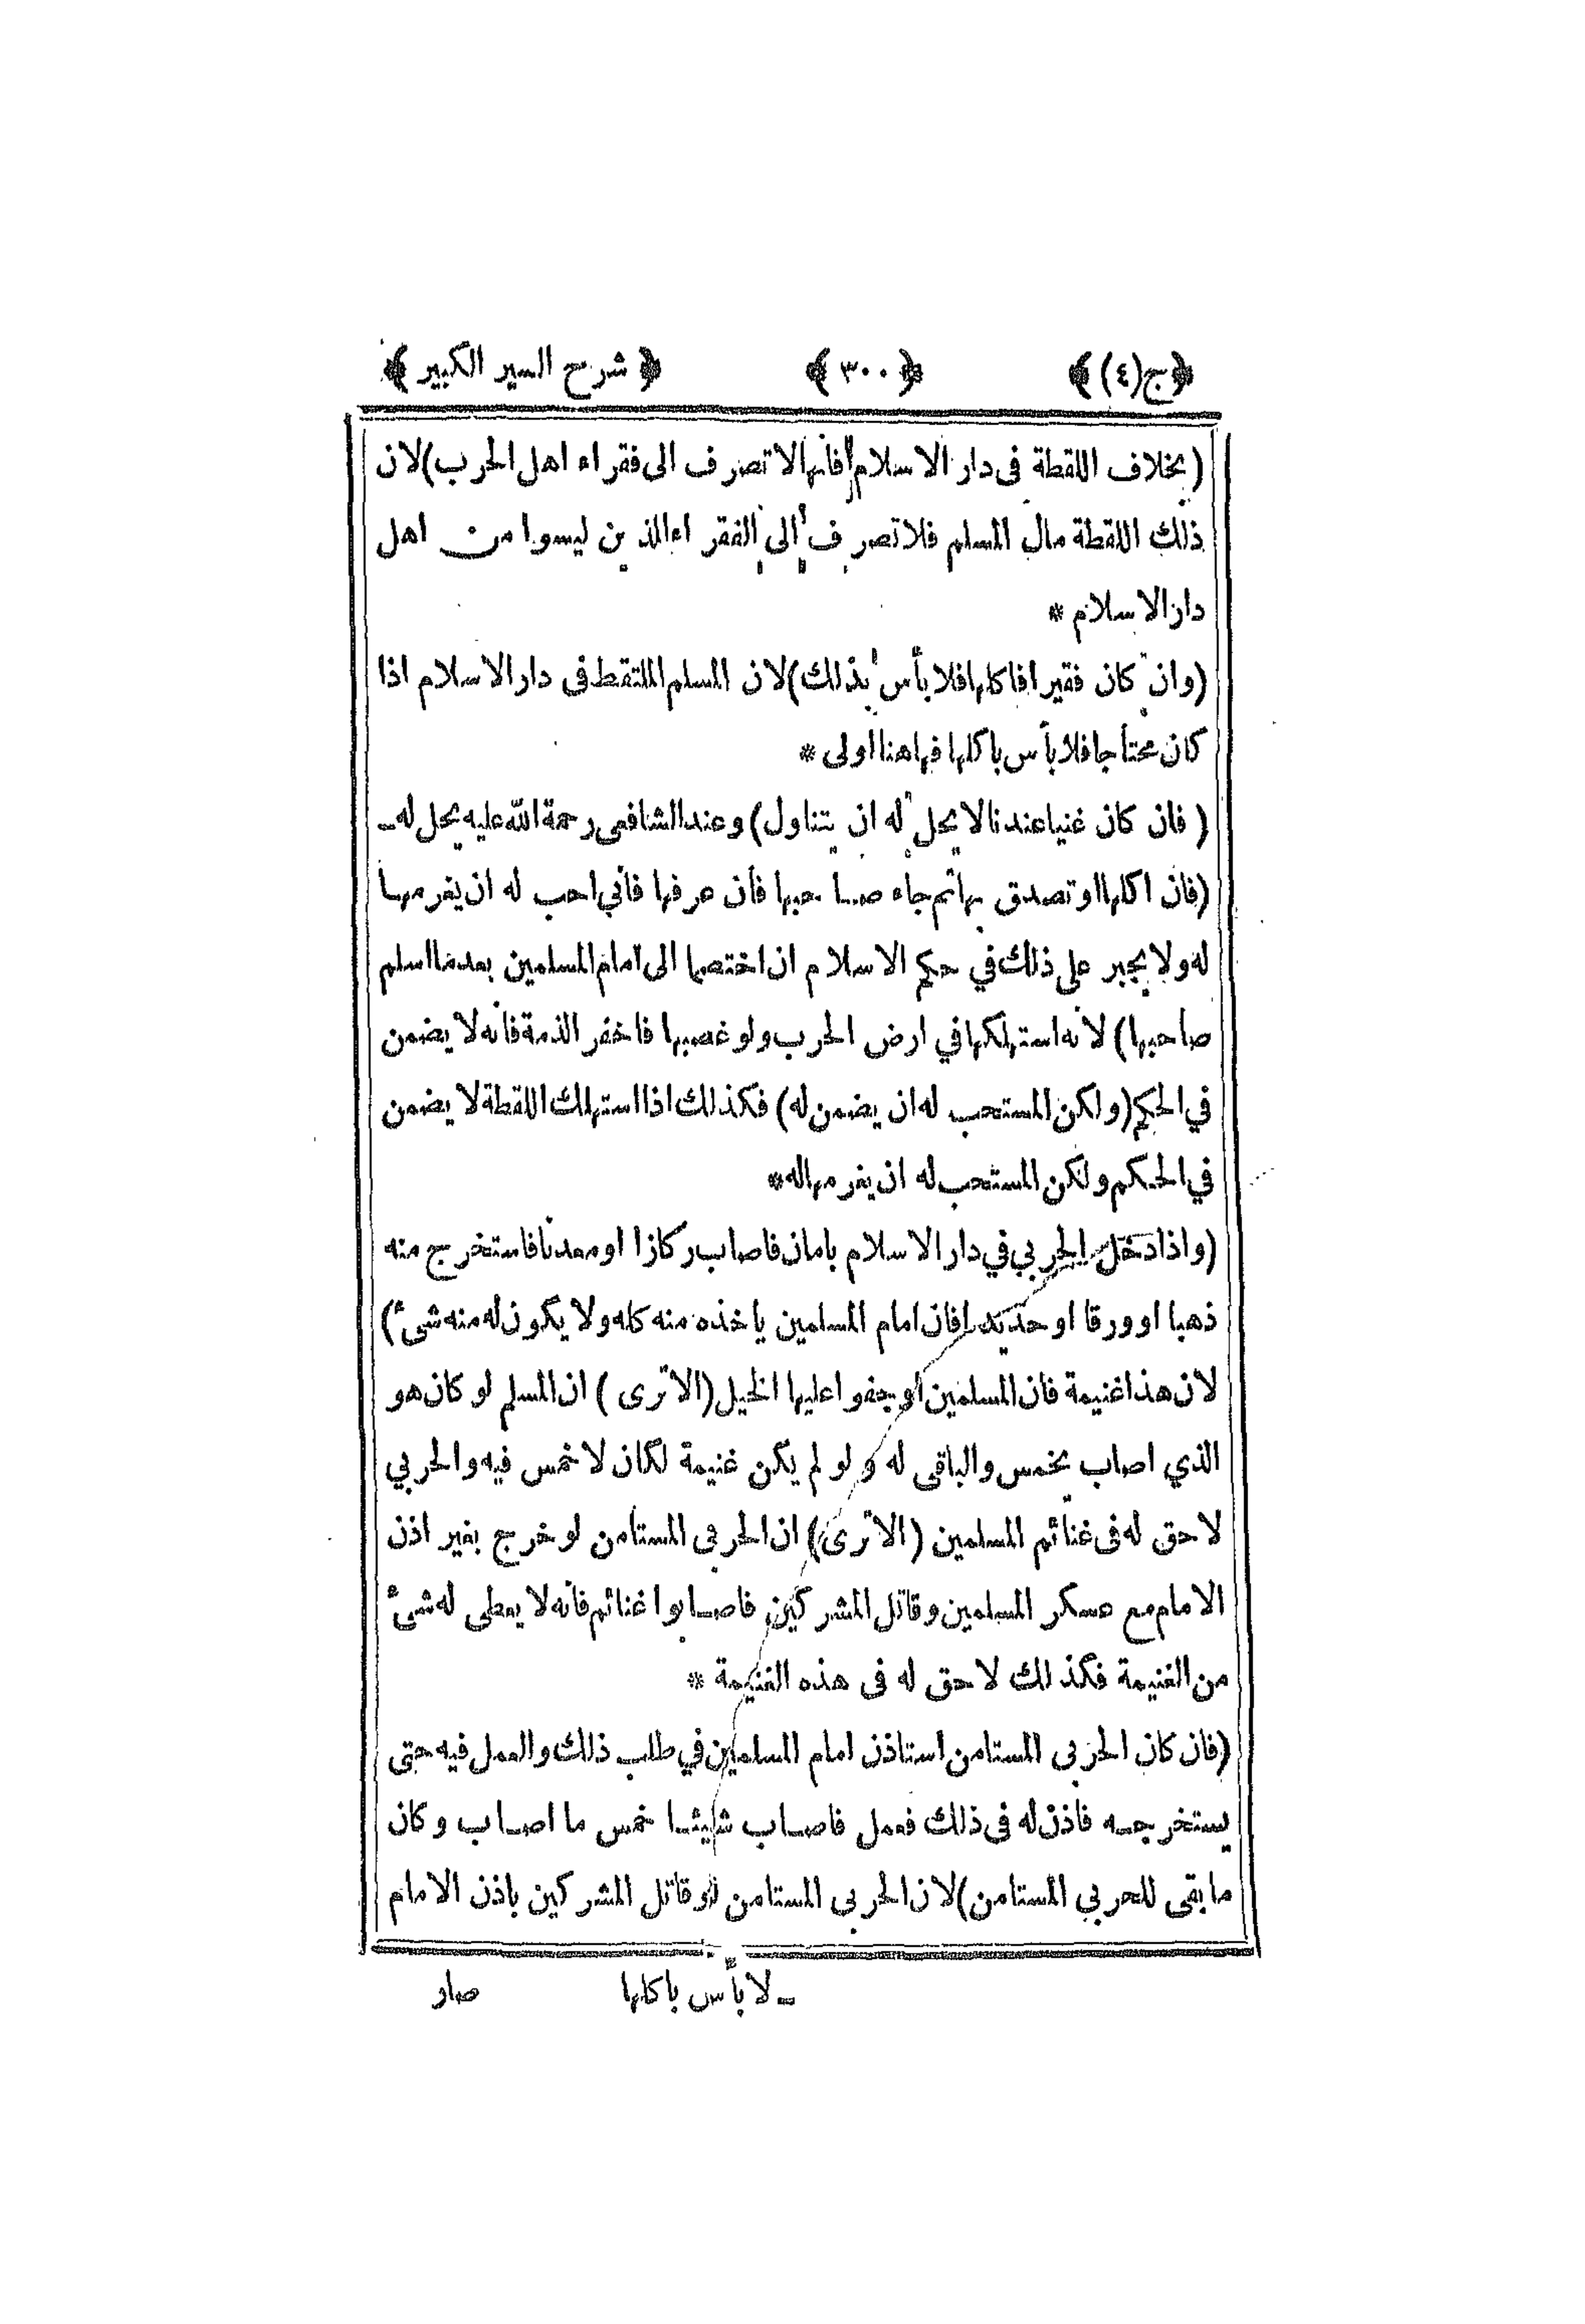 ﴿ج(٤)﴾ ﴿٣٠٠﴾ ﴿شرح السير الكبير﴾
(بخلاف اللقطة فى دار الاسلام فانها لا تصرف الى فقراء اهل الحرب) لان
ذلك اللقطة مال المسلم فلا تصرف الى الفقراء الذين ليسوا من اهل
دار الاسلام *
(وان كان فقيرا فاكلها فلا بأس بذلك) لان المسلم الملتقط فى دار الاسلام اذا
كان محتاجا فلا بأس باكلها فهاهنا اولى *
(فان كان غنيا عندنا لا يحل له ان يتناول) وعند الشافعى رحمة الله عليه يحل له ـ
(فان اكلها او تصدق بها ثم جاء صاحبها فان عرفها فانى احب له ان يغرمها
له ولا يجبر على ذلك في حكم الاسلام ان اختصما الى امام المسلمين بعد ما اسلم
صاحبها) لانه استهلكها في ارض الحرب ولو غصبها فاخفر الذمة فانه لا يضمن
في الحكم (ولكن المستحب له ان يضمن له) فكذلك اذا استهلك اللقطة لا يضمن
في الحكم ولكن المستحب له ان يغرمها له *
(واذا دخل الحربي في دار الاسلام بامان فاصاب ركازا او معدنا فاستخرج منه
ذهبا او ورقا او حديدا فان امام المسلمين ياخذه منه كله ولا يكون له منه شئ)
لان هذا غنيمة فان المسلمين اوجفوا عليها الخيل (الا ترى) ان المسلم لو كان هو
الذي اصاب يخمس والباقى له ولو لم يكن غنيمة لكان لا خمس فيه والحربي
لا حق له فى غنائم المسلمين (الا ترى) ان الحربى المستامن لو خرج بغير اذن
الامام مع عسكر المسلمين وقاتل المشركين فاصابوا غنائم فانه لا يعطى له شئ
من الغنيمة فكذلك لا حق له فى هذه الغنيمة *
(فان كان الحربى المستامن استاذن امام المسلمين في طلب ذلك والعمل فيه حتى
يستخرجه فاذن له فى ذلك فعمل فاصاب شيئا خمس ما اصاب وكان
ما بقى للحربي المستامن) لان الحربى المستامن لو قاتل المشركين باذن الامام
ـ لا بأس باكلها صار